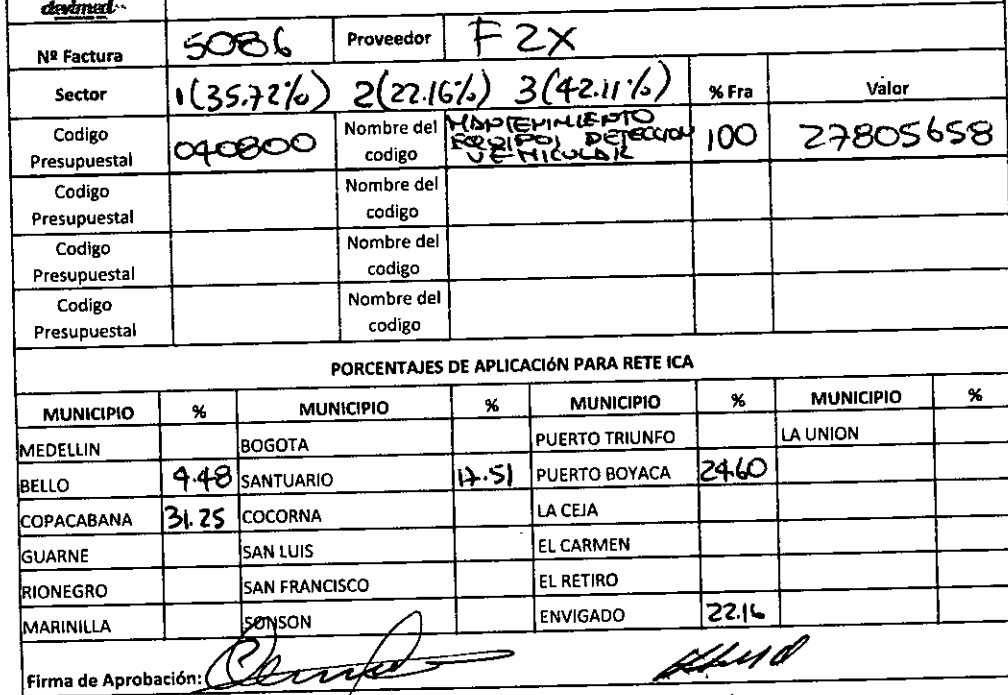 devimed
Nº Factura 5086 Proveedor F2X
Sector 1(35.72%) 2(22.16%) 3(42.11%) % Fra Valor
Codigo Presupuestal 040800 Nombre del codigo MANTENIMIENTO EQUIPOS DETECCION VEHICULAR 100 27805658
Codigo Presupuestal Nombre del codigo
Codigo Presupuestal Nombre del codigo
Codigo Presupuestal Nombre del codigo
PORCENTAJES DE APLICACIóN PARA RETE ICA
MUNICIPIO % MUNICIPIO % MUNICIPIO % MUNICIPIO %
MEDELLIN BOGOTA PUERTO TRIUNFO LA UNION
BELLO 4.48 SANTUARIO 17.51 PUERTO BOYACA 24.60
COPACABANA 31.25 COCORNA LA CEJA
GUARNE SAN LUIS EL CARMEN
RIONEGRO SAN FRANCISCO EL RETIRO
MARINILLA SONSON ENVIGADO 22.16
Firma de Aprobación: